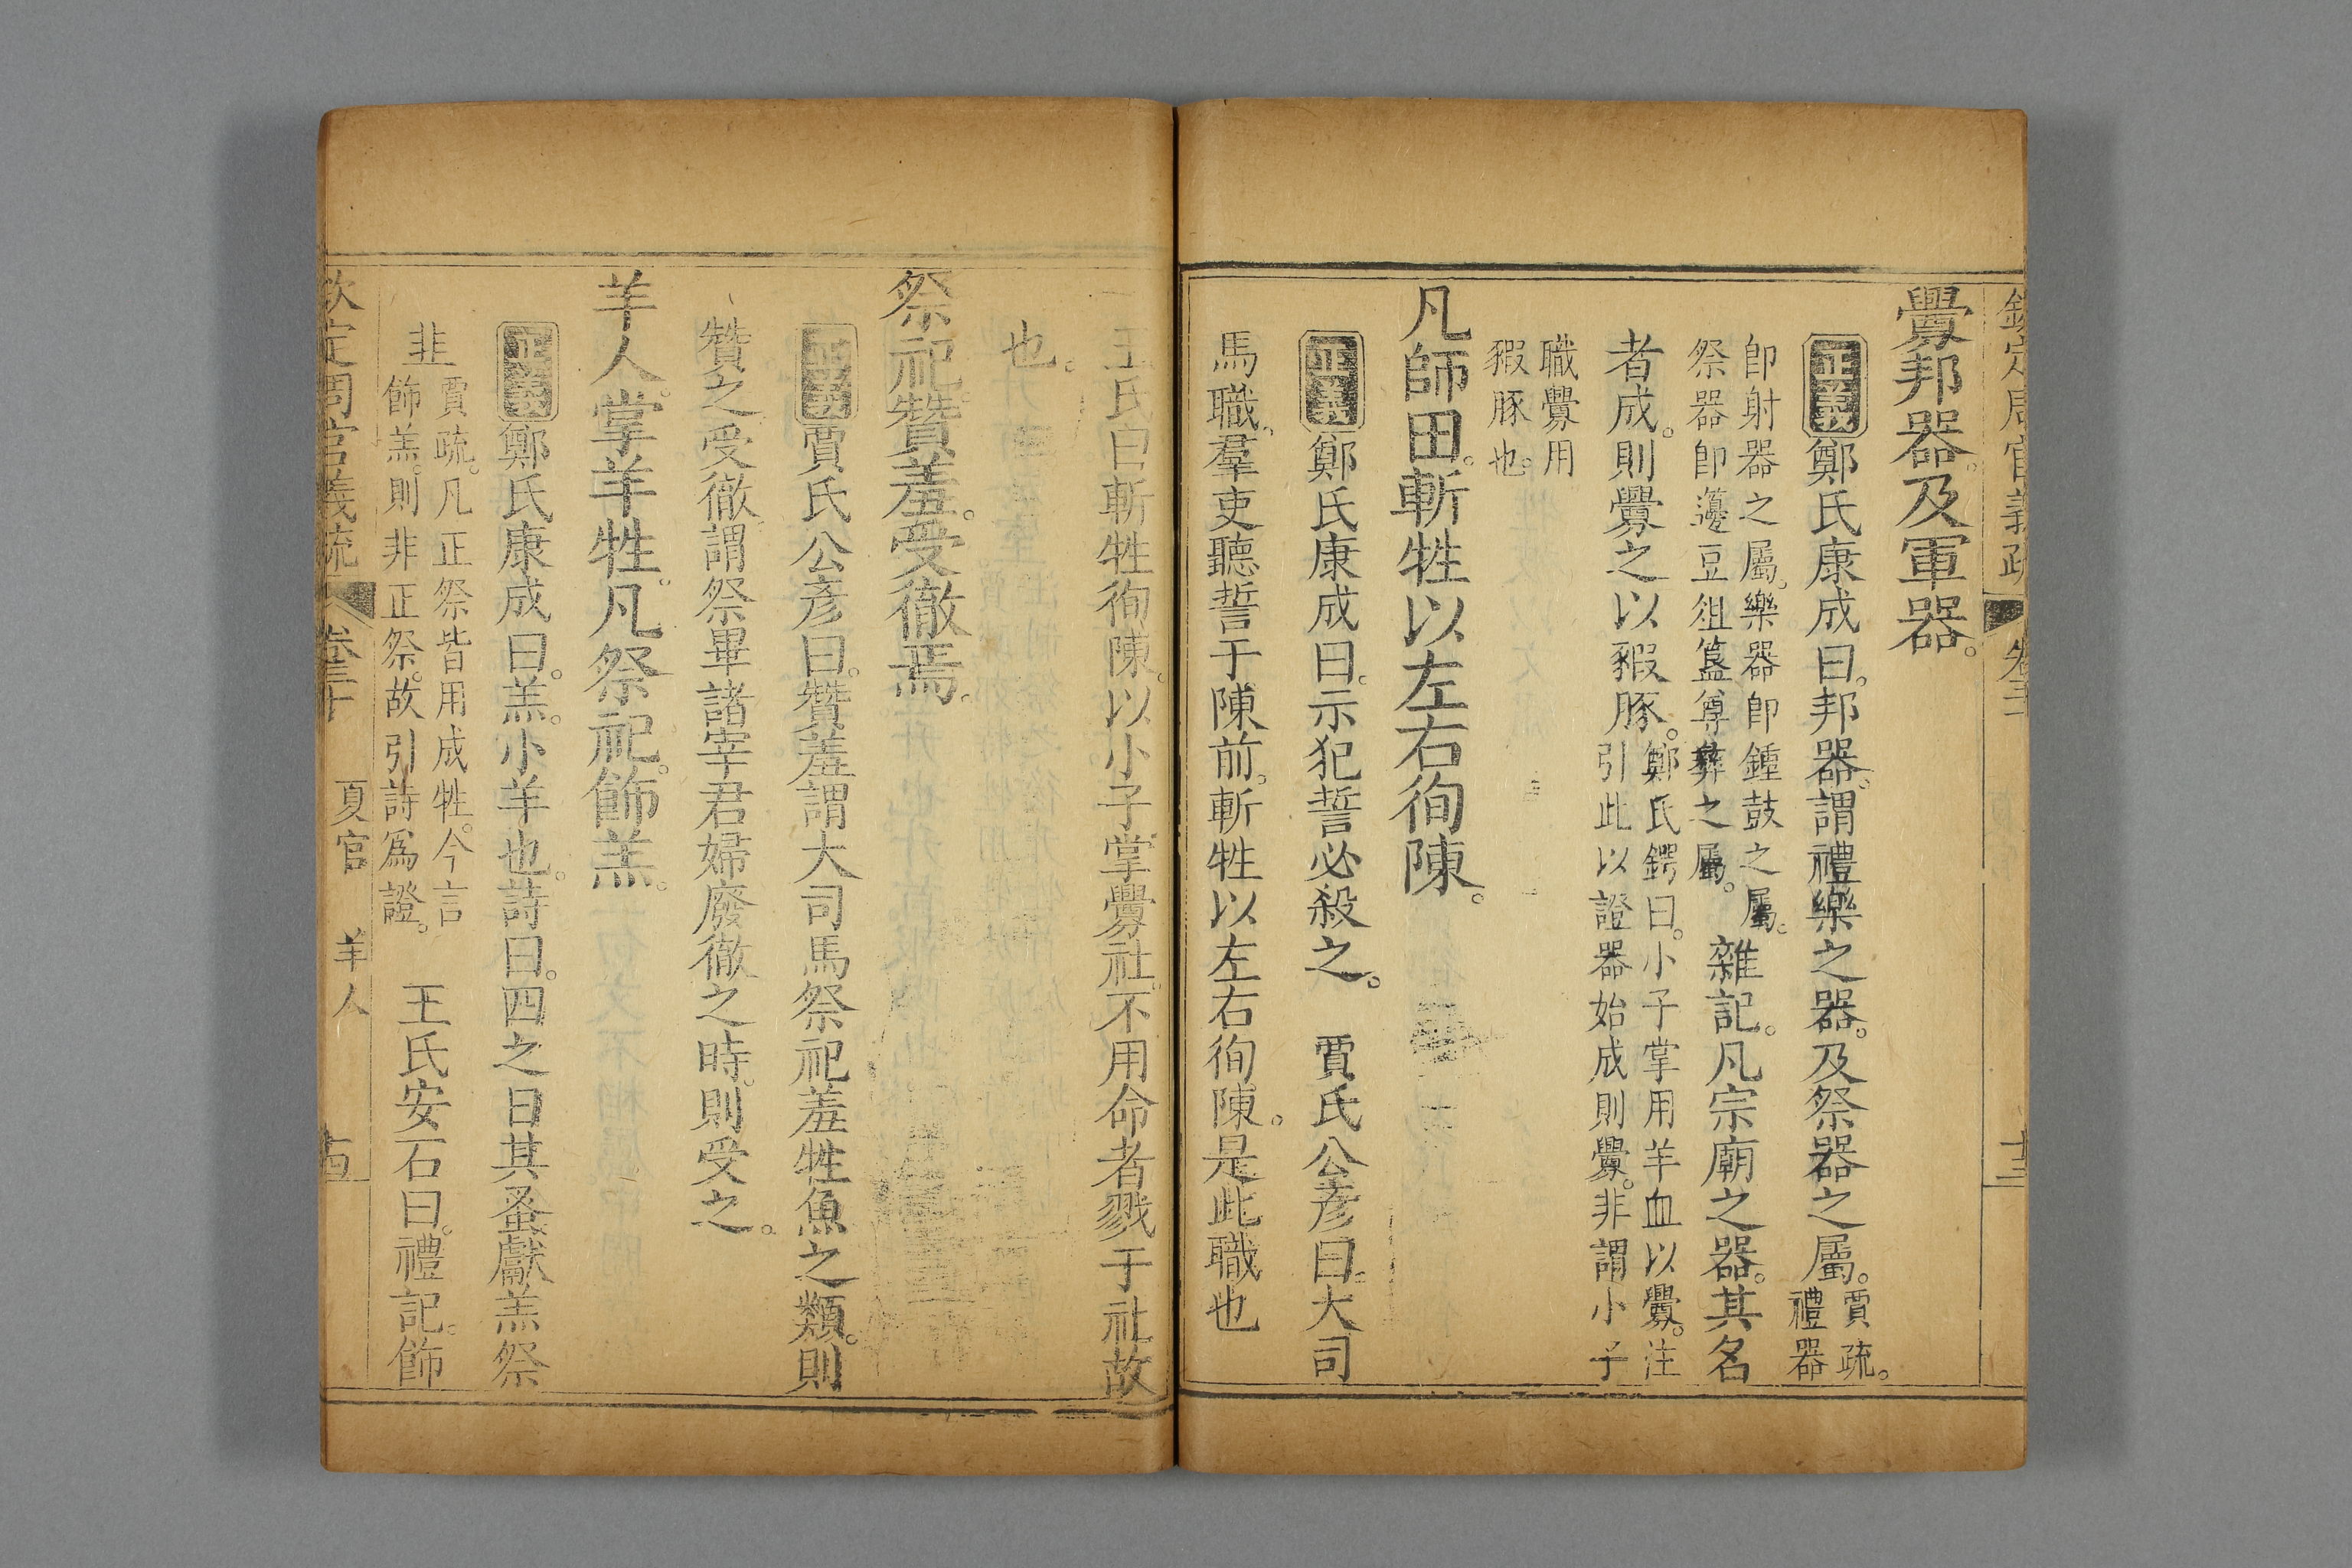 欽定周官義疏 卷三十 十三
釁邦器及軍器。
正義 鄭氏康成曰。邦器。謂禮樂之器。及祭器之屬。賈疏。禮器
即射器之屬。樂器即鍾鼓之屬。
祭器即籩豆俎簋尊彝之屬。
雜記。凡宗廟之器。其名
者成。則釁之以豭豚。
鄭氏鍔曰。小子掌用羊血以釁。注
引此以證器始成則釁。非謂小子
職釁用
豭豚也。
凡師田。斬牲以左右徇陳。
正義 鄭氏康成曰。示犯誓必殺之。 賈氏公彥曰。大司
馬職。羣吏聽誓于陳前。斬牲以左右徇陳。是此職也
王氏曰斬牲徇陳。以小子掌釁社。不用命者戮于社故
也。
祭祀。贊羞。受徹焉。
正義 賈氏公彥曰。贊羞。謂大司馬祭祀羞牲魚之類。則
贊之。受徹。謂祭畢諸宰君婦廢徹之時。則受之。
羊人。掌羊牲。凡祭祀。飾羔。
正義 鄭氏康成曰。羔。小羊也。詩曰。四之日其蚤獻羔祭
韭
賈疏。凡正祭皆用成牲。今言
飾羔。則非正祭。故引詩爲證。
王氏安石曰。禮記。飾
欽定周官義疏 卷三十 夏官 羊人